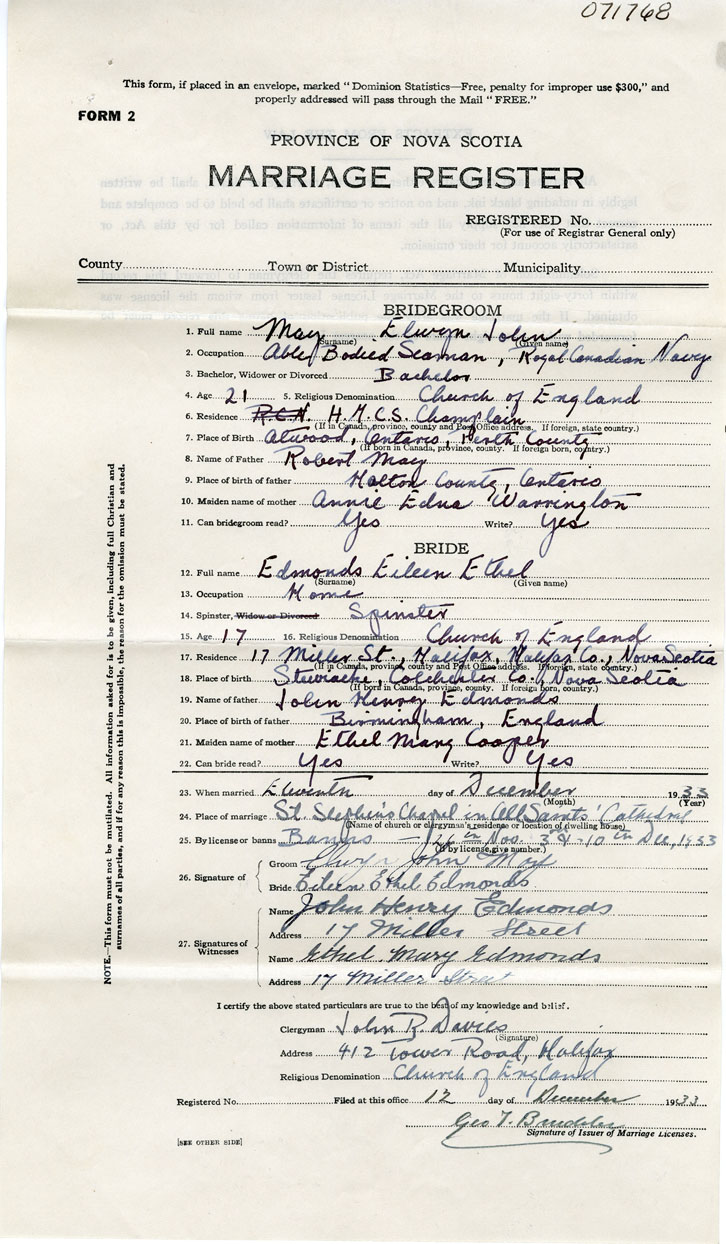 071768
This form, if placed in an envelope, marked "Dominion Statistics—Free, penalty for improper use $300," and
properly addressed will pass through the Mail "FREE."
FORM 2
PROVINCE OF NOVA SCOTIA
MARRIAGE REGISTER
REGISTERED No.
(For use of Registrar General only)
County Town or District Municipality
BRIDEGROOM
1. Full name May Elwyn John
(Surname) (Given name)
2. Occupation Able Bodied Seaman, Royal Canadian Navy
3. Bachelor, Widower or Divorced Bachelor
4. Age 21 5. Religious Denomination Church of England
6. Residence R.C.N. H.M.C.S. Champlain
(If in Canada, province, county and Post Office address. If foreign, state country.)
7. Place of Birth Atwood, Ontario, Perth County
(If born in Canada, province, county. If foreign born, country.)
8. Name of Father Robert May
9. Place of birth of father Halton County, Ontario
10. Maiden name of mother Annie Edna Warrington
11. Can bridegroom read? Yes Write? Yes
BRIDE
12. Full name Edmonds Eileen Ethel
(Surname) (Given name)
13. Occupation Home
14. Spinster, Widow or Divorced Spinster
15. Age 17 16. Religious Denomination Church of England
17. Residence 17 Miller St., Halifax, Halifax Co., Nova Scotia
(If in Canada, province, county and Post Office address. If foreign, state country.)
18. Place of birth Stewiacke, Colchester Co., Nova Scotia
(If born in Canada, province, county. If foreign born, country.)
19. Name of father John Henry Edmonds
20. Place of birth of father Birmingham, England
21. Maiden name of mother Ethel Mary Cooper
22. Can bride read? Yes Write? Yes
23. When married Eleventh day of December 1933
(Month) (Year)
24. Place of marriage St. Stephen's Chapel in All Saints' Cathedral
(Name of church or clergyman's residence or location of dwelling house)
25. By license or banns Banns — Nov. 3rd & 10th in Dec, 1933
(If by license, give number.)
26. Signature of
Groom Elwyn John May
Bride Eileen Ethel Edmonds
27. Signatures of Witnesses
Name John Henry Edmonds
Address 17 Miller Street
Name Ethel Mary Edmonds
Address 17 Miller Street
I certify the above stated particulars are true to the best of my knowledge and belief.
Clergyman John R. Davies
(Signature)
Address 412 Tower Road, Halifax
Religious Denomination Church of England
Registered No. Filed at this office 12 day of December 1933
Geo T.
Signature of Issuer of Marriage Licenses.
[SEE OTHER SIDE]
NOTE.—This form must not be mutilated. All information asked for is to be given, including full Christian and
surnames of all parties, and if for any reason this is impossible, the reason for the omission must be stated.